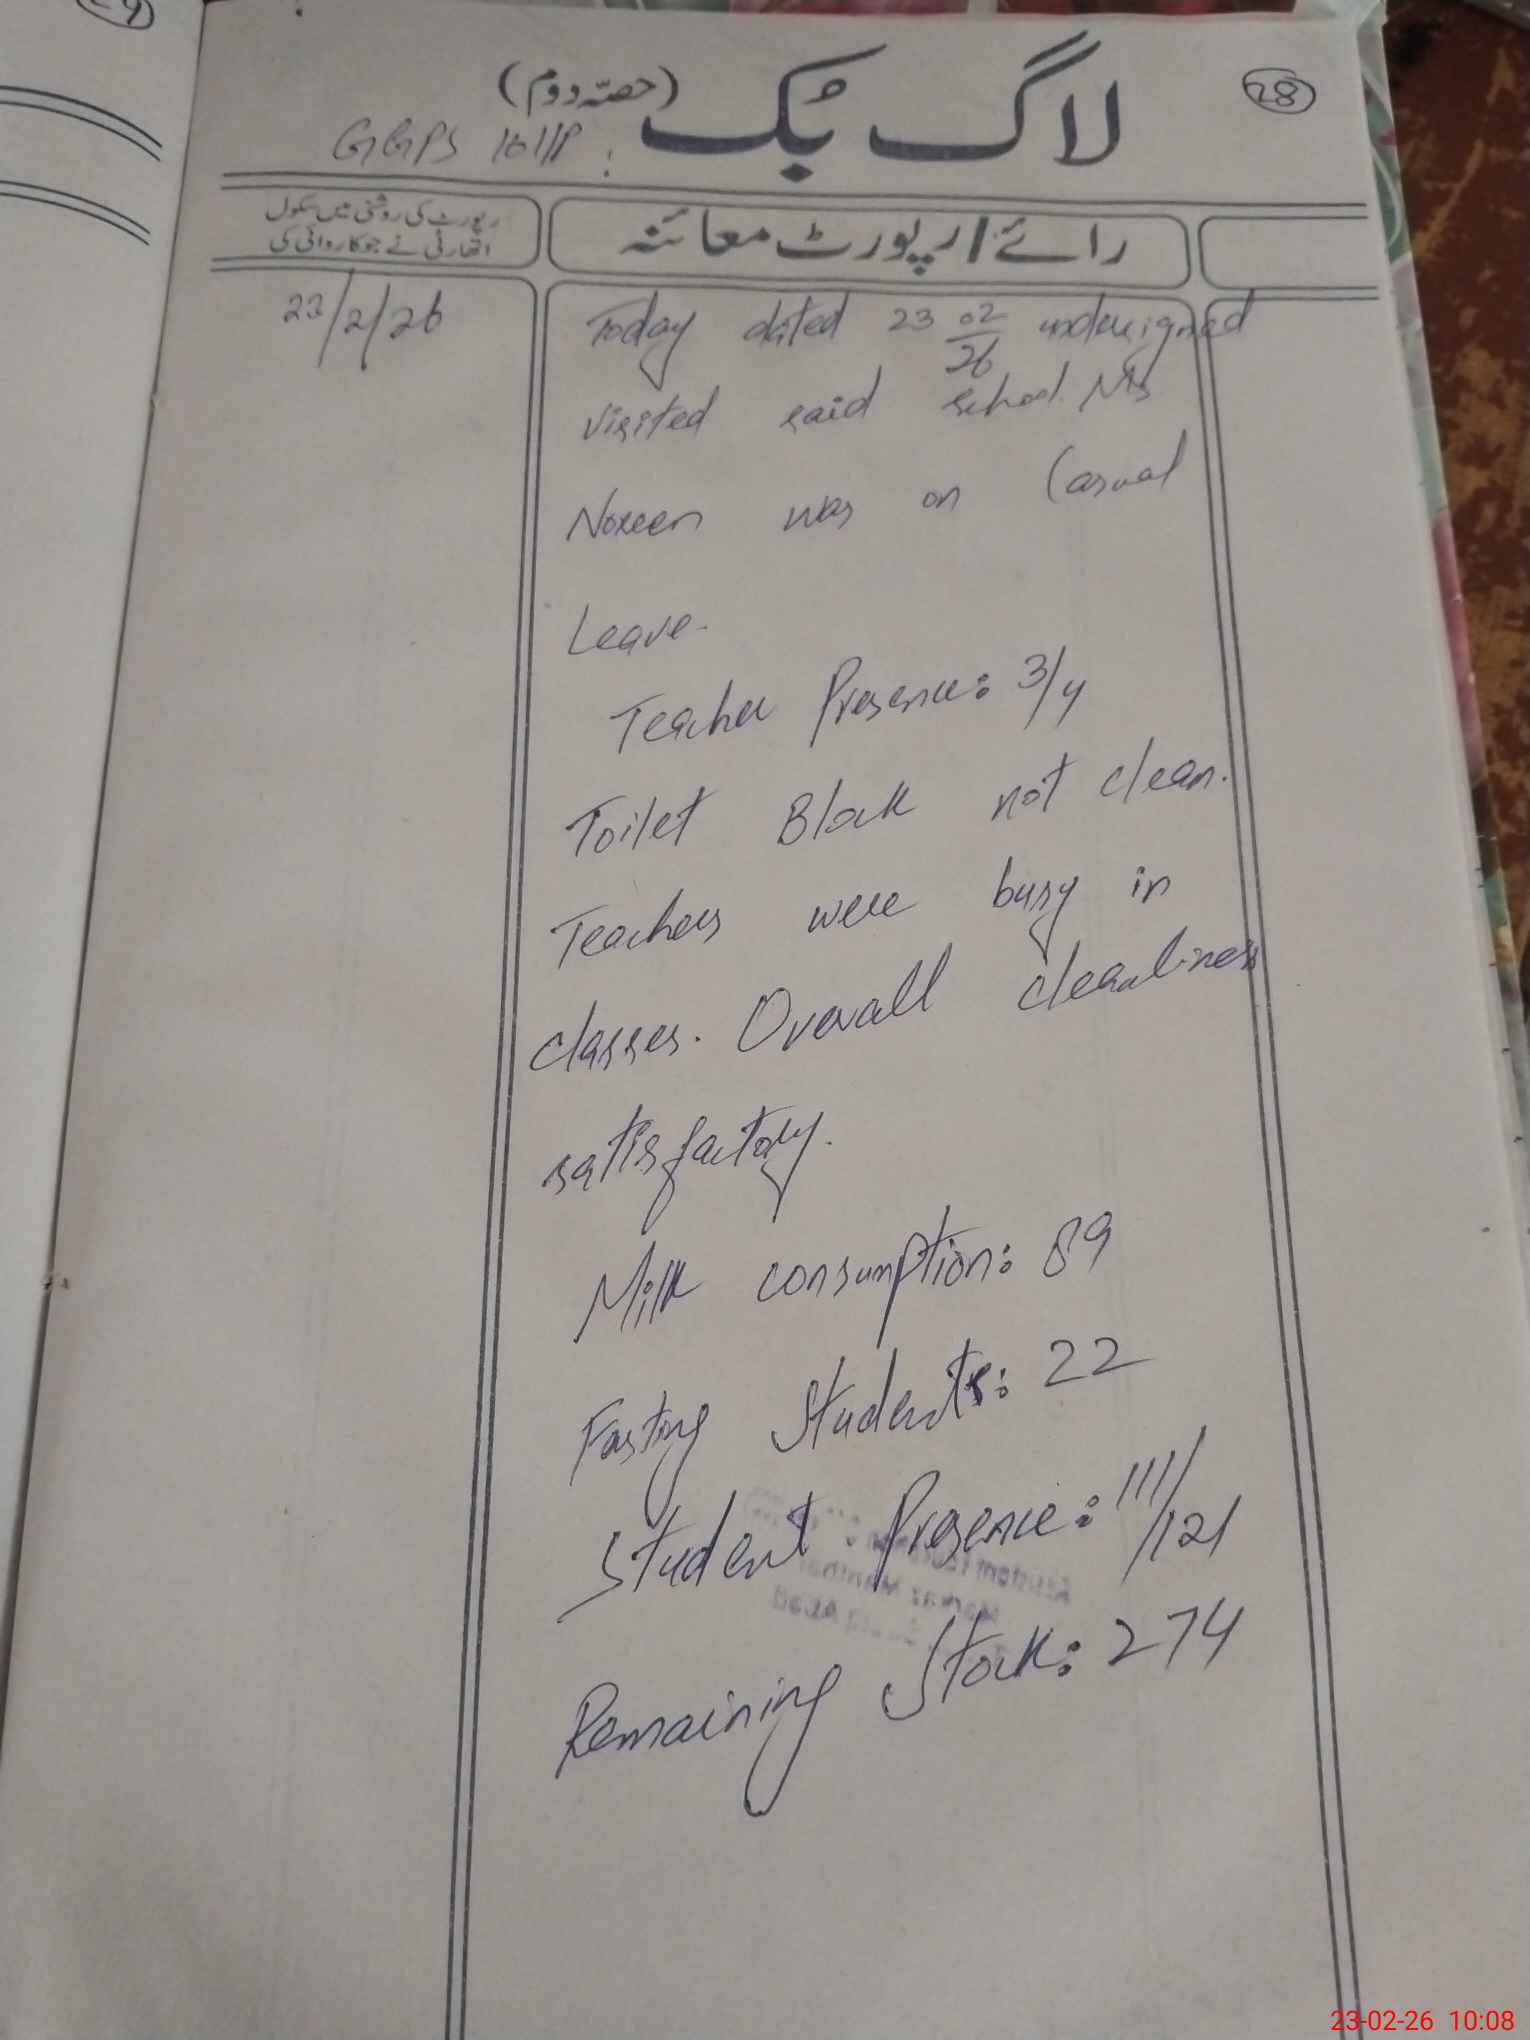 28
لاگ بک (حصّہ دوم)
GGPS 161/P
رائے / رپورٹ معائنہ
رپورٹ کی روشنی میں سکول
اتھارٹی نے جو کاروائی کی
23/2/26
Today dated 23 02/26 undersigned
visited said school. Ms
Noreen was on Casual
Leave.
Teacher Presence: 3/4
Toilet Block not clean.
Teachers were busy in
classes. Overall cleanliness
satisfactory.
Milk consumption: 89
Fasting Students: 22
Student Presence: 111/121
Remaining Stock: 274
23-02-26 10:08